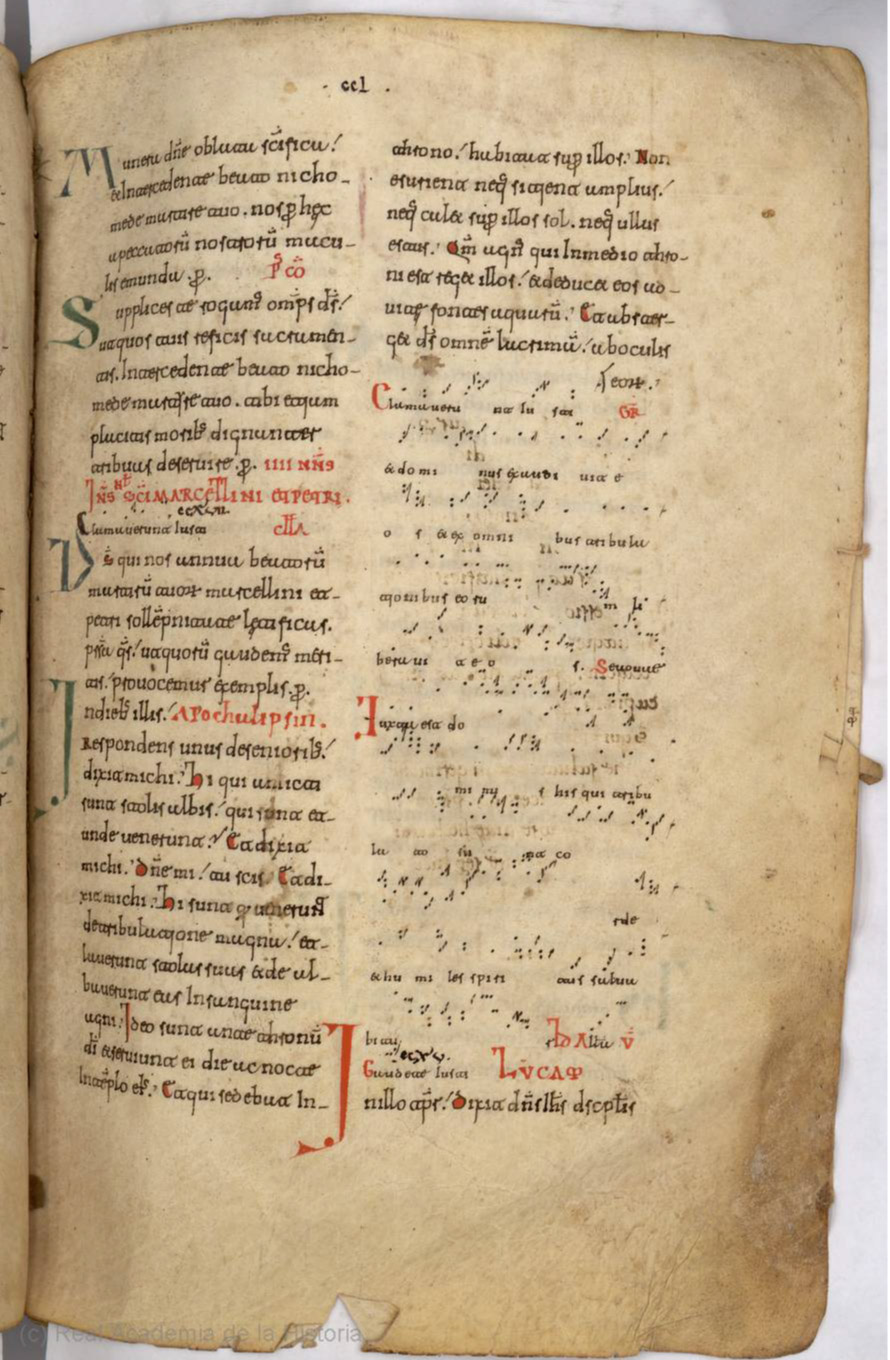 ccl
Munera dñe oblata scifica.
& intercedente beato nicho-
mede martire tuo. nos p hec
a peccatorū nostrorū macu-
lis emunda. p. P cō
Supplices te rogamus omps ds.
ut quos tuis reficis sacramen-
tis. Intercedente beato nicho-
mede martire tuo. tibi etiam
placitis moribus dignanter
tribuas deservire. p. IIII NNS
IŃS NT SCI MARCELLINI ET PETRI.
Clamaverunt iusti
Ds qui nos annua beatorū
martirū tuorum marcellini et-
petri sollēpnitate letificas.
presta qs. ut quorū gaudemus meri-
tis. provocemur exemplis. p.
In dieb illis. APochalipsin.
Respondens unus de seniorib.
dixit michi. Hi qui amicti
sunt stolis albis. qui sunt et-
unde venerunt. Et dixit
michi. Dñe mi. tu scis. Et di-
xit michi. Hi sunt qui venerunt
de tribulatione magna. et-
laverunt stolas suas & deal-
baverunt eas In sanguine
agni. Ideo sunt ante thronū
di & serviunt ei die ac nocte
In templo eius. Et qui sedebat In-
throno. habitat sup illos. Non
esurient neq sitient amplius.
neq cad& sup illos sol. neq ullus
estus. Qm agnus qui In medio thro-
ni est reg& illos. & deduc& eos ad-
vite fontes aquarū. Et abster-
g& ds omnē lacrimā. ab oculis
eorum.
Clamaveru nt iu sti GR
& do mi nus exaudi vit e
o s & ex omni bus tribula
tionibus eo ru
bera vi t e o s. Sequente
Iuxta est do
mi nu s his qui tribu
la to su nt co
rde
& hu mi les spiri tus salva
bi t Alta V
ccxv.
Gaudete iusti LUCAM
In illo tprs. Dixit dñs Ihs dscplis